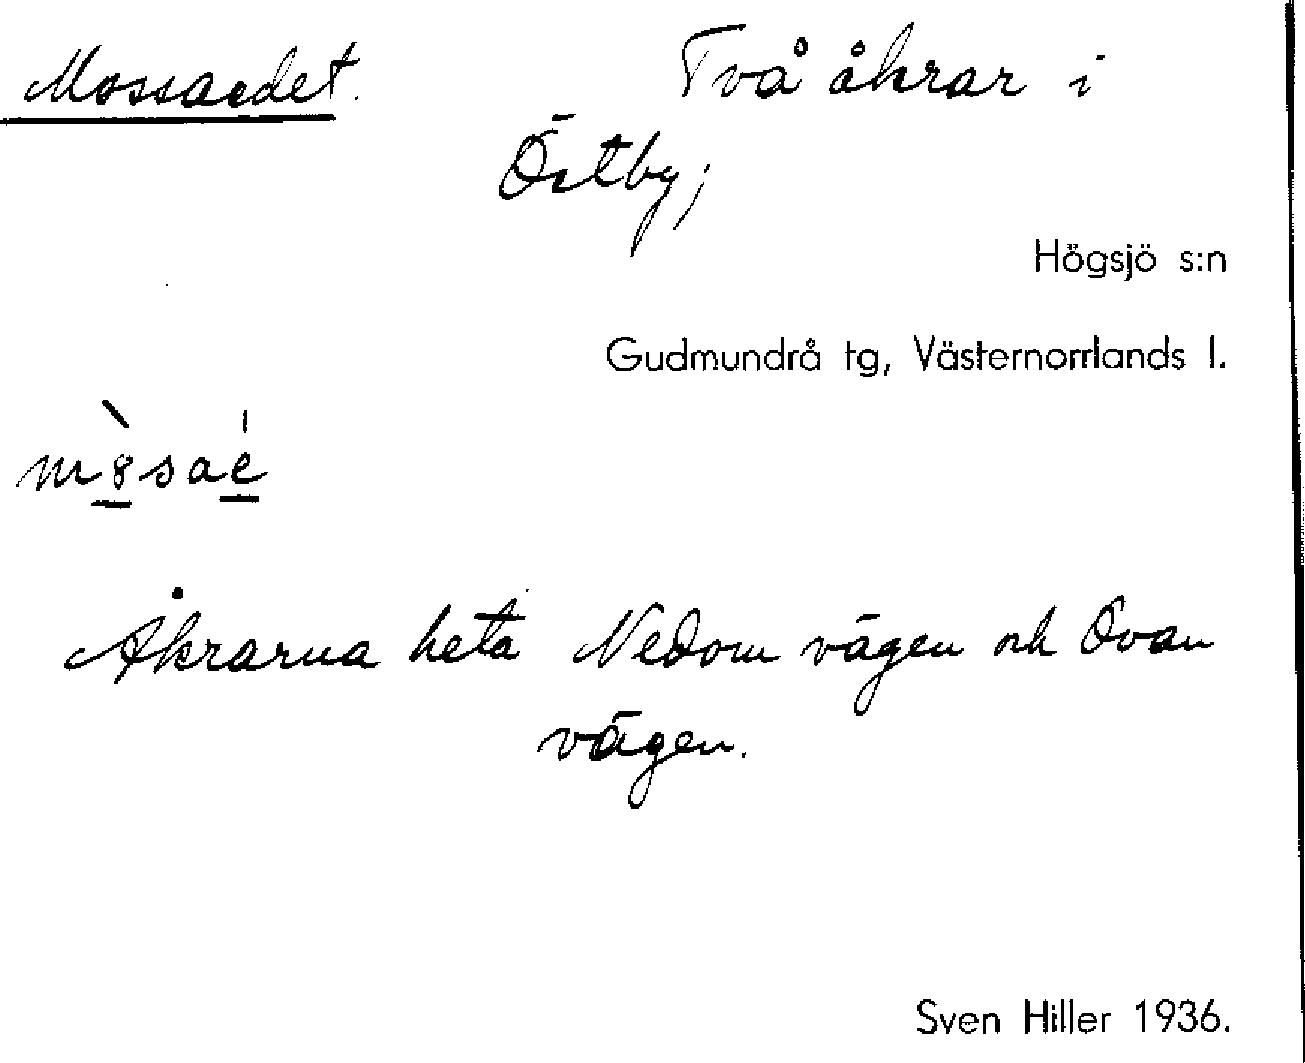 Mossaedet. Två åkrar i
Östby;
Högsjö s:n
Gudmundrå tg, Västernorrlands l.
Åkrarna heta Nedom vägen och Ovan
vägen.
Sven Hiller 1936.